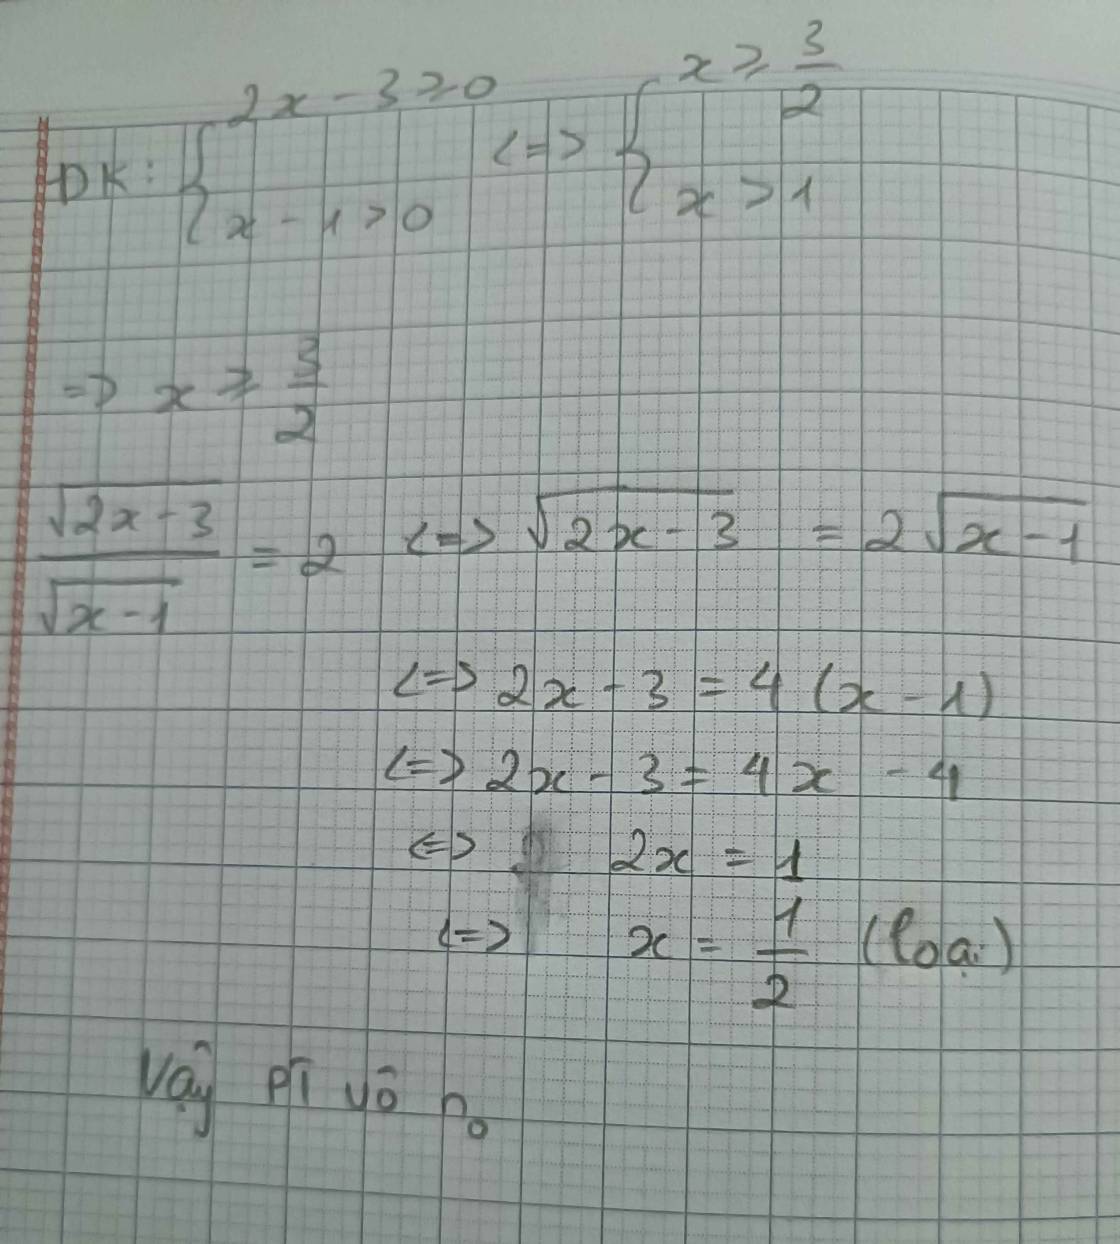 ĐK: { 2x - 3 ≥ 0 <=> { x ≥ 3/2
x - 1 > 0 x > 1
=> x ≥ 3/2
√(2x - 3)/√(x - 1) = 2 <=> √(2x - 3) = 2√(x - 1)
<=> 2x - 3 = 4 (x - 1)
<=> 2x - 3 = 4x - 4
<=> 2x = 1
<=> x = 1/2 (loại)
Vậy PT vô n0